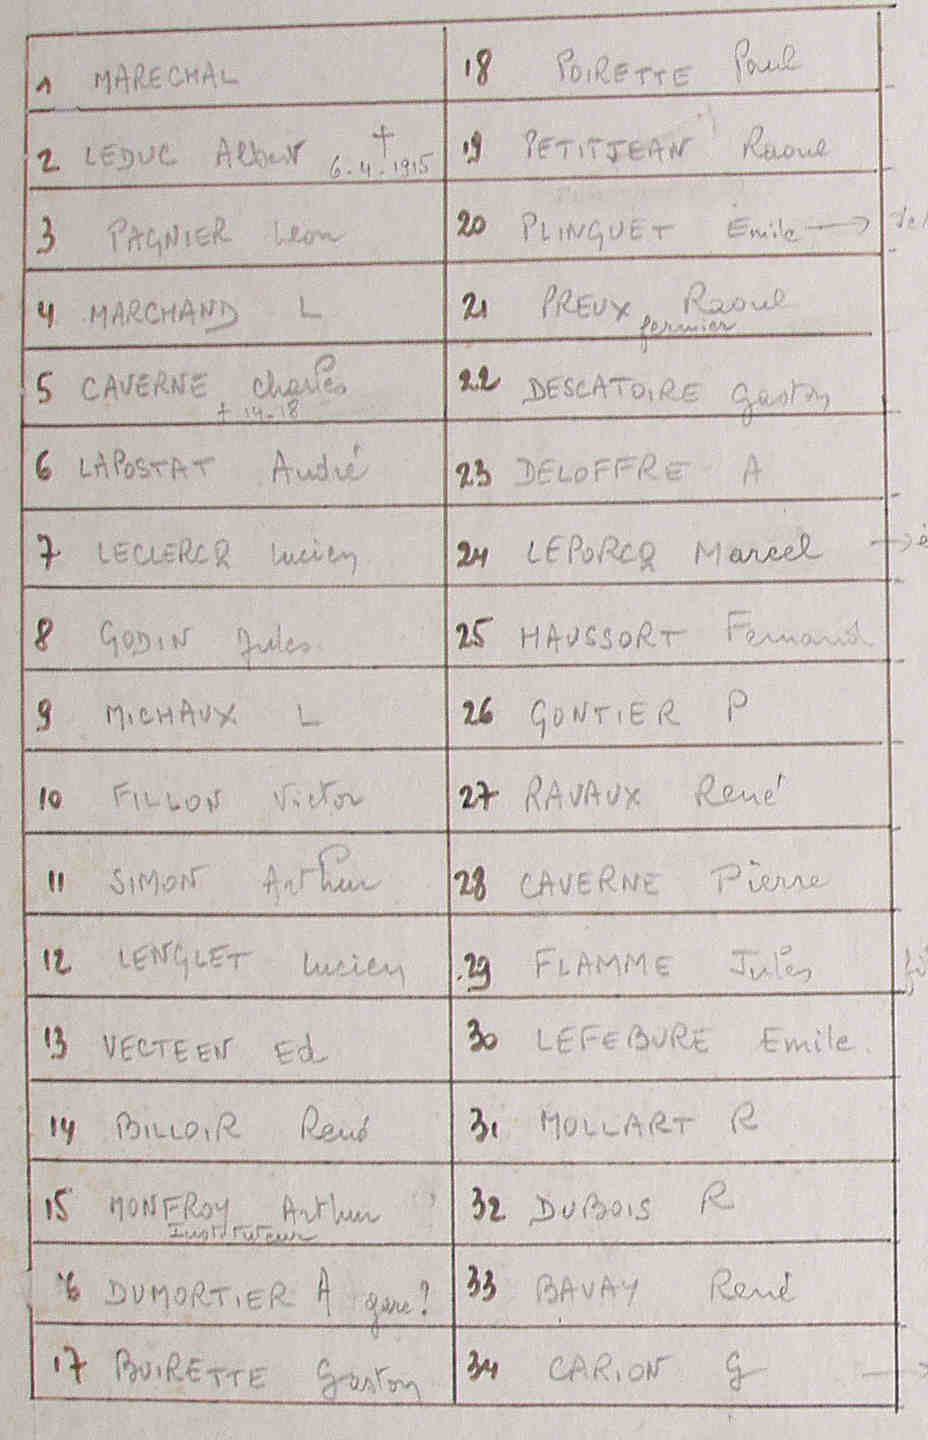 1 MARECHAL
2 LEDUC Albert † 6.4.1915
3 PAGNIER Léon
4 MARCHAND L
5 CAVERNE Charles
+ 14-18
6 LAPOSTAT André
7 LECLERCQ Lucien
8 GODIN Jules
9 MICHAUX L
10 FILLON Victor
11 SIMON Arthur
12 LENGLET Lucien
13 VECTEEN Ed
14 BILLOIR René
15 MONFROY Arthur
Instituteur
16 DUMORTIER A gare?
17 BUIRETTE Gaston
18 POIRETTE Paul
19 PETITJEAN Raoul
20 PLINGUET Emile →
21 PREUX Raoul
fermier
22 DESCATOIRE Gaston
23 DELOFFRE A
24 LEPORCQ Marcel →
25 HAUSSORT Fernand
26 GONTIER P
27 RAVAUX René
28 CAVERNE Pierre
29 FLAMME Jules
30 LEFEBURE Emile
31 MOLLART R
32 DUBOIS R
33 BAVAY René
34 CARION G →